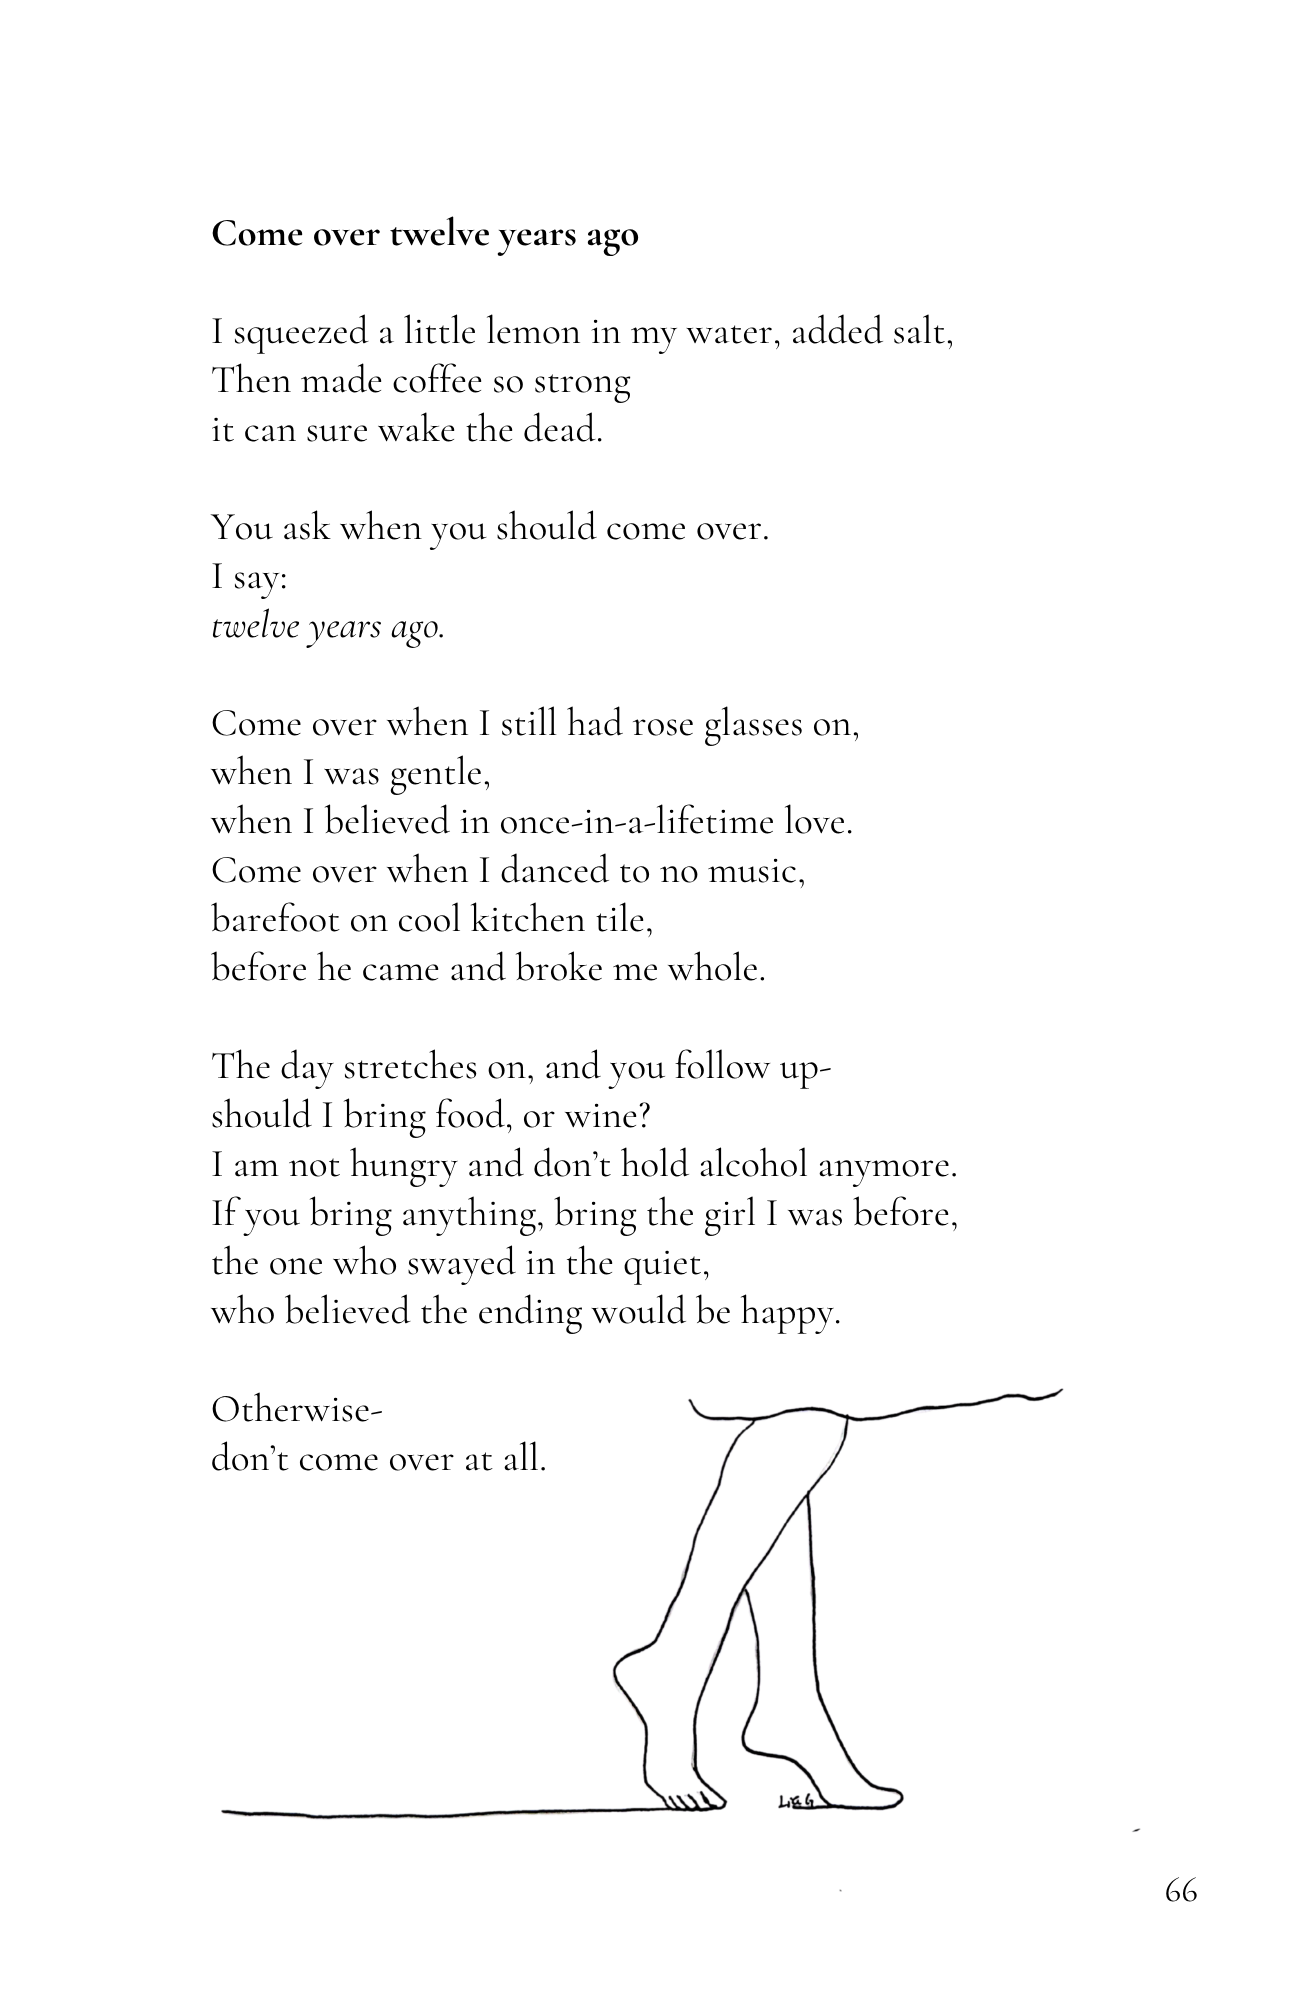 Come over twelve years ago
I squeezed a little lemon in my water, added salt,
Then made coffee so strong
it can sure wake the dead.
You ask when you should come over.
I say:
twelve years ago.
Come over when I still had rose glasses on,
when I was gentle,
when I believed in once-in-a-lifetime love.
Come over when I danced to no music,
barefoot on cool kitchen tile,
before he came and broke me whole.
The day stretches on, and you follow up-
should I bring food, or wine?
I am not hungry and don't hold alcohol anymore.
If you bring anything, bring the girl I was before,
the one who swayed in the quiet,
who believed the ending would be happy.
Otherwise-
don't come over at all.
66